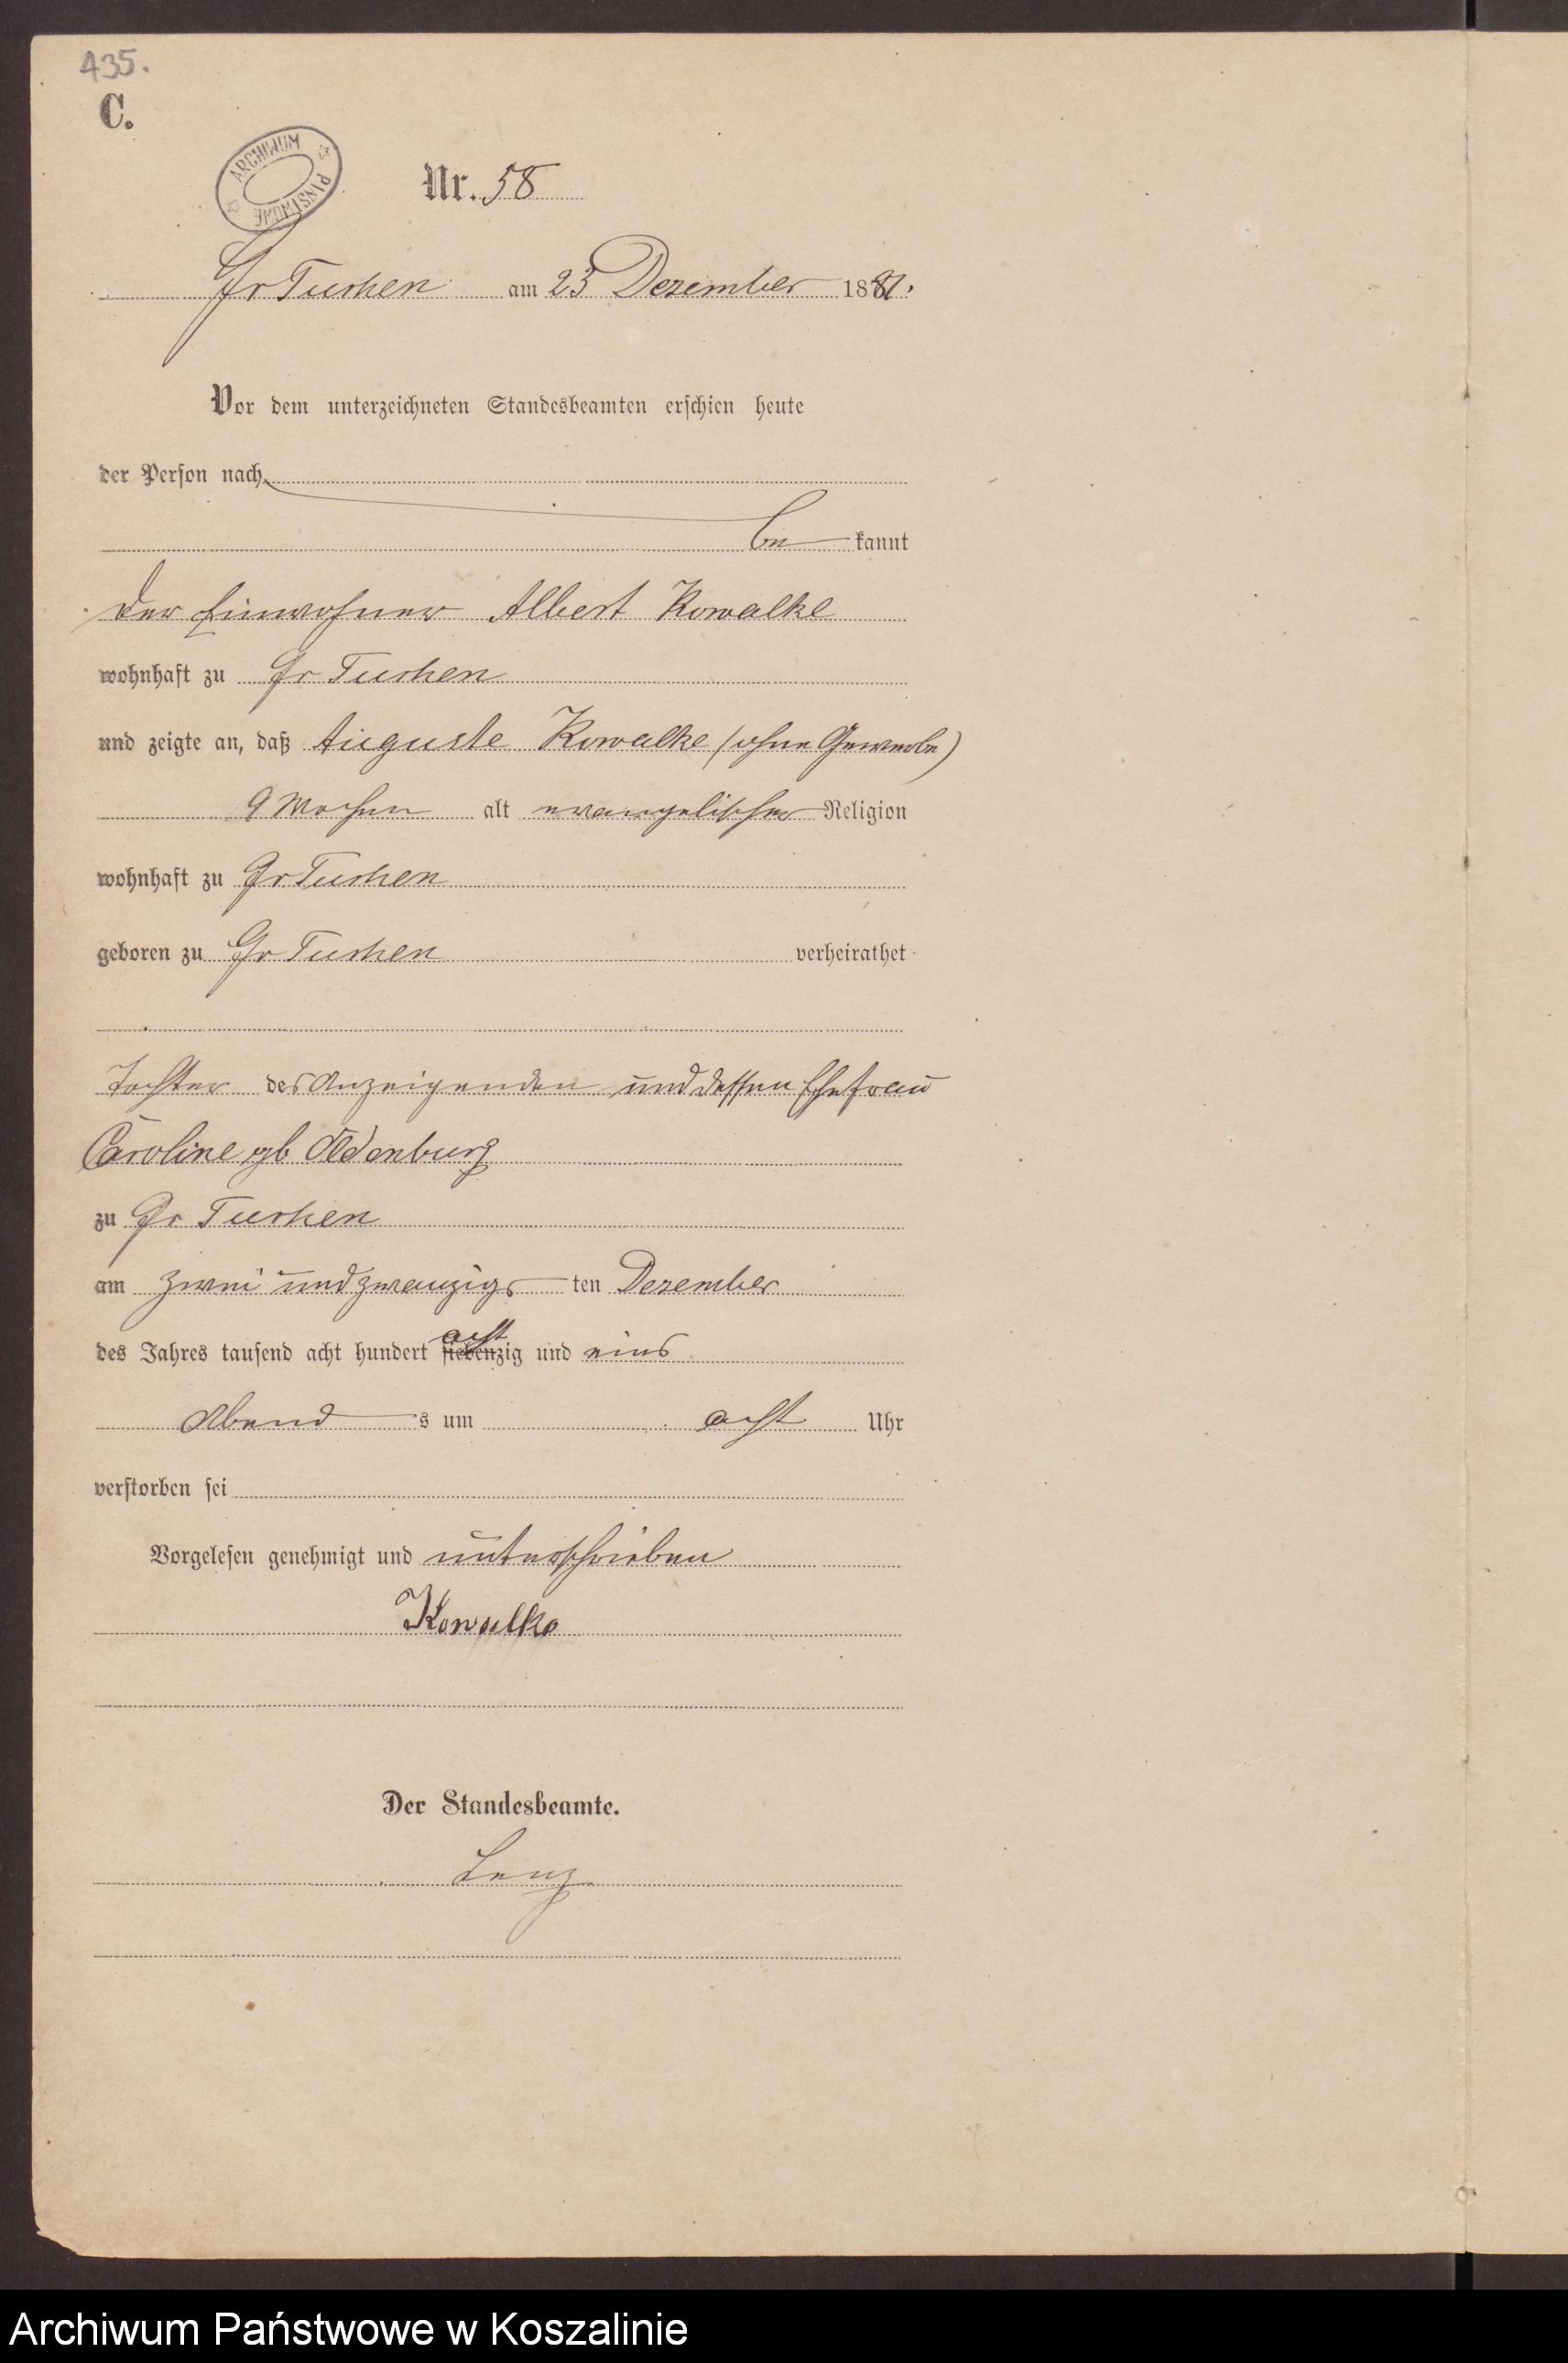 435.
C.
ARCHIWUM PAŃSTWOWE
Nr. 58
Gr Tuchen am 23 Dezember 1881.
Vor dem unterzeichneten Standesbeamten erschien heute
der Person nach
be kannt
der Einwohner Albert Kowalke
wohnhaft zu Gr Tuchen
und zeigte an, daß Auguste Kowalke (ohne Gewerbe)
9 Wochen alt evangelischer Religion
wohnhaft zu Gr Tuchen
geboren zu Gr Tuchen verheirathet
Tochter des Anzeigenden und dessen Ehefrau
Caroline gb Oldenburg
zu Gr Tuchen
am zwei und zwanzigs ten Dezember
des Jahres tausend acht hundert siebenzig acht und eins
Abend s um acht Uhr
verstorben sei
Vorgelesen genehmigt und unterschrieben
Kowalke
Der Standesbeamte.
Lenz
Archiwum Państwowe w Koszalinie